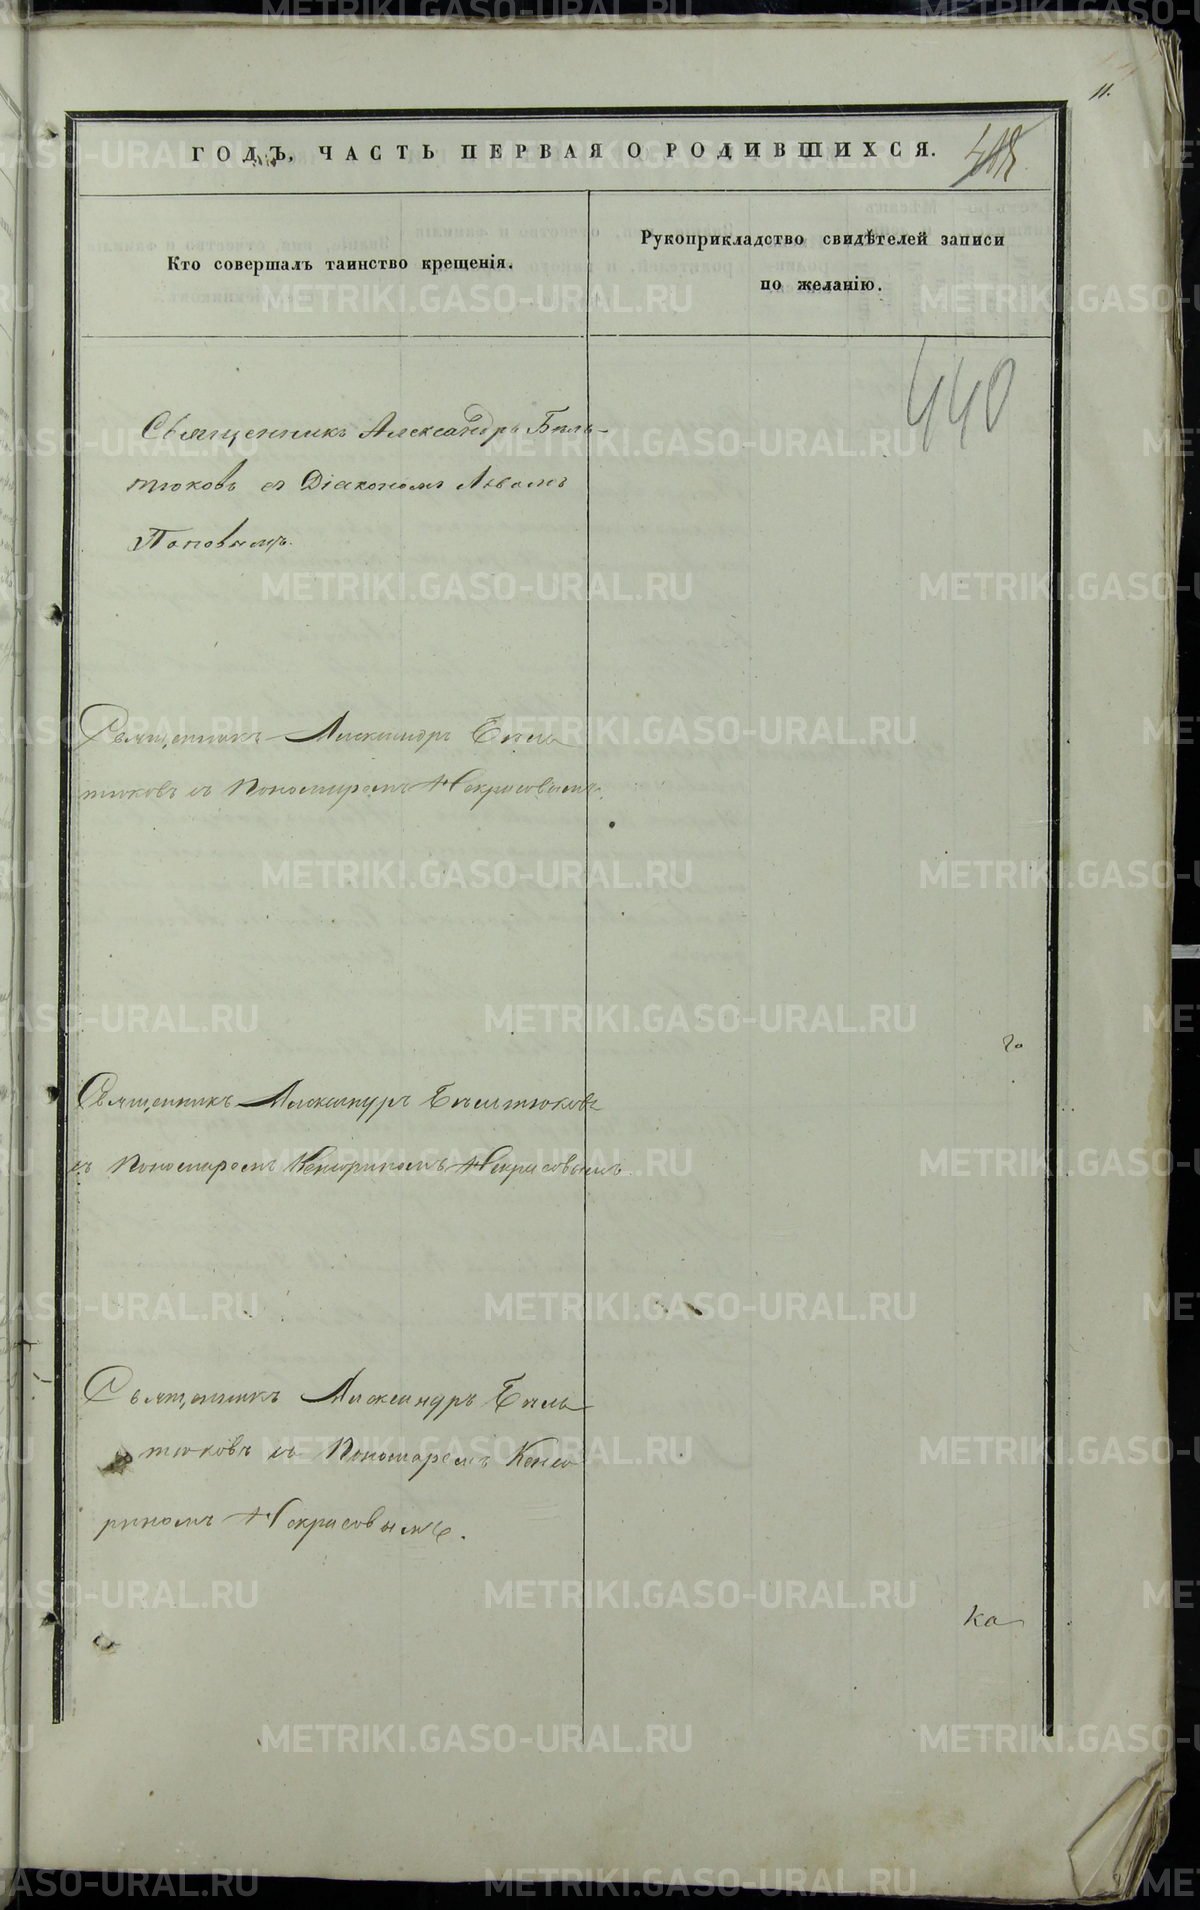 11.
ГОДЪ, ЧАСТЬ ПЕРВАЯ О РОДИВШИХСЯ.
Кто совершалъ таинство крещенія.
Рукоприкладство свидѣтелей записи
по желанію.
440
Священникъ Александръ Биль-
тюковъ съ Діакономъ Львомъ
Поповымъ.
Священникъ Александръ Биль
тюковъ съ Пономаремъ Некрасовымъ.
го
Священникъ Александръ Бильтюковъ
съ Пономаремъ Кенсориномъ Некрасовымъ.
Священникъ Александръ Биль
тюковъ съ Пономаремъ Кенсо
риномъ Некрасовымъ.
ка
METRIKI.GASO-URAL.RU